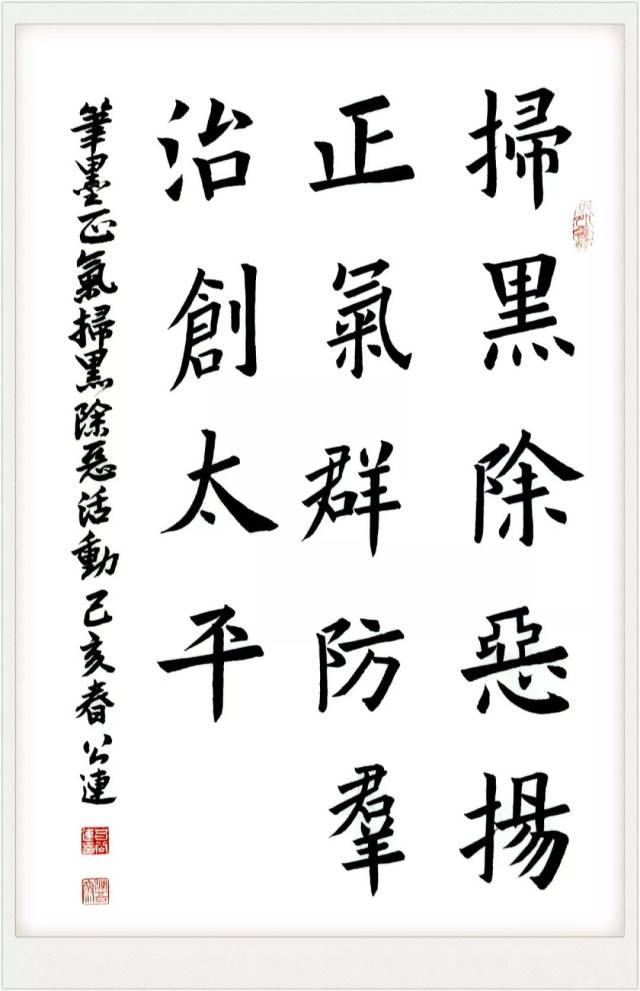 掃黑除惡揚
正氣群防羣
治創太平
筆墨正氣掃黑除惡活動己亥春公連